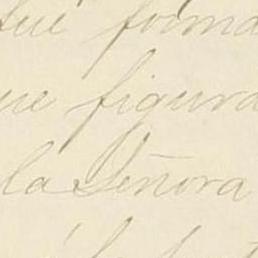 que forma
que figura
la Señora